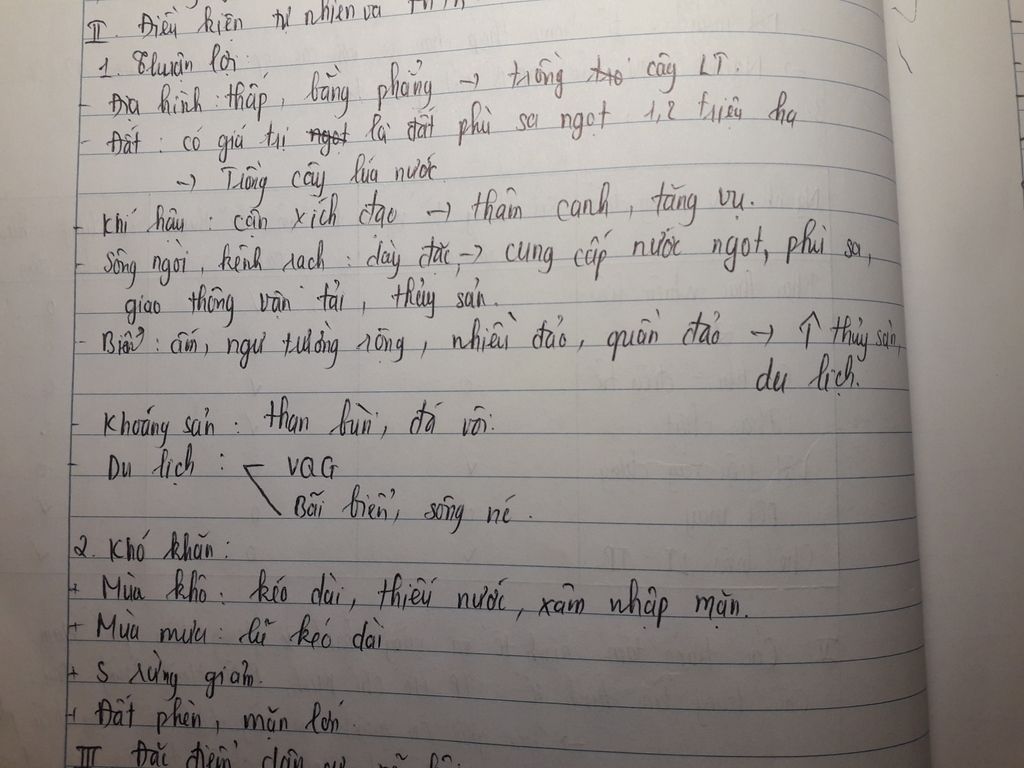 II. Điều kiện tự nhiên và TNTN
1. Thuận lợi:
- Địa hình: thấp, bằng phẳng → trồng cây LT.
- Đất: có giá trị là đất phù sa ngọt 1,2 triệu ha
→ Trồng cây lúa nước
- Khí hậu: cận xích đạo → thâm canh, tăng vụ.
- Sông ngòi, kênh rạch: dày đặc, → cung cấp nước ngọt, phù sa,
giao thông vận tải, thủy sản.
- Biển: ấm, ngư trường rộng, nhiều đảo, quần đảo → ↑ thủy sản,
du lịch.
- Khoáng sản: than bùn, đá vôi.
- Du lịch: VQG
Bãi biển, sông né.
2. Khó khăn:
+ Mùa khô: kéo dài, thiếu nước, xâm nhập mặn.
+ Mùa mưa: lũ kéo dài
+ S rừng giảm.
+ Đất phèn, mặn lớn.
III Đặc điểm dân cư